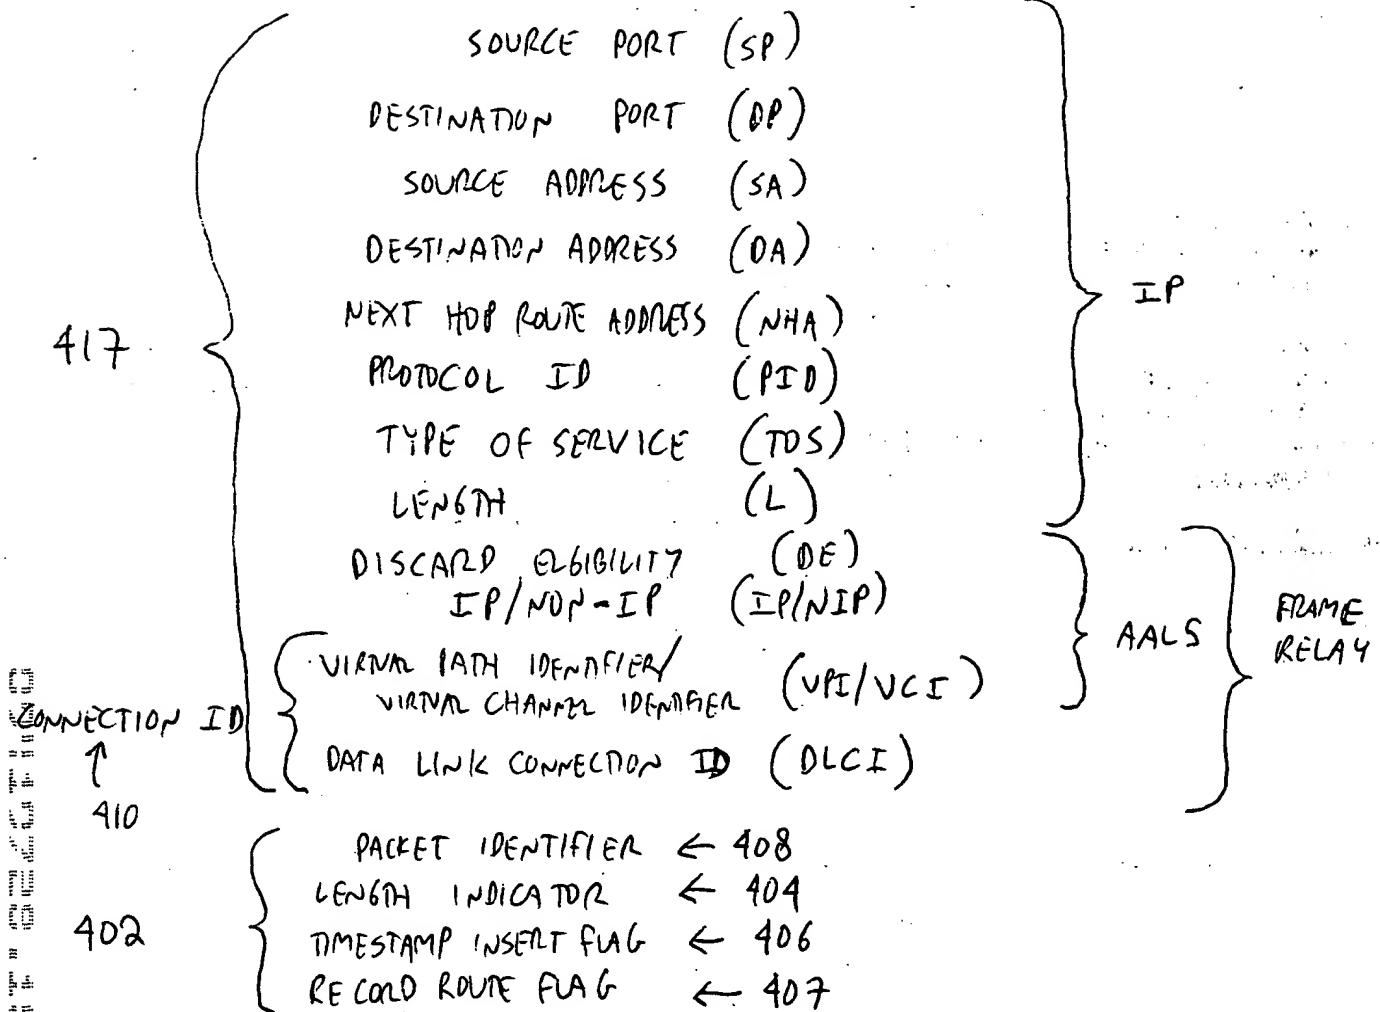 SOURCE PORT (SP)
DESTINATION PORT (DP)
SOURCE ADDRESS (SA)
DESTINATION ADDRESS (DA)
NEXT HOP ROUTE ADDRESS (NHA)
IP
417
PROTOCOL ID (PID)
TYPE OF SERVICE (TOS)
LENGTH (L)
DISCARD ELGIBILITY (DE)
IP/NON-IP (IP/NIP)
AAL5
FRAME
RELAY
VIRTUAL PATH IDENTIFIER/
VIRTUAL CHANNEL IDENTIFIER (VPI/VCI)
CONNECTION ID
410
DATA LINK CONNECTION ID (DLCI)
402
PACKET IDENTIFIER ← 408
LENGTH INDICATOR ← 404
TIMESTAMP INSERT FLAG ← 406
RECORD ROUTE FLAG ← 407